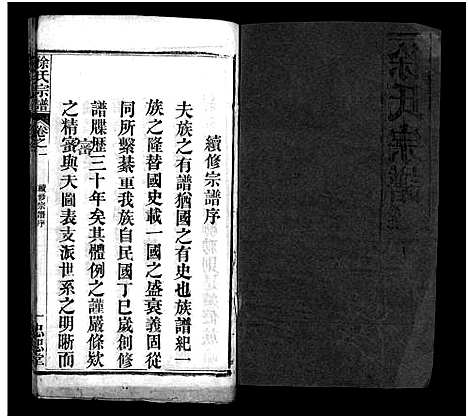 徐氏宗譜
續修宗譜序
夫族之有譜猶國之有史也族譜紀一
族之隆替國史載一國之盛衰義固從
同所繫綦重我族自民國丁巳歲創修
譜牒歷三十年矣其體例之謹嚴條欵
之精密與夫圖表支派世系之明晰而
密
徐氏宗譜
卷之一
續修宗譜序
一